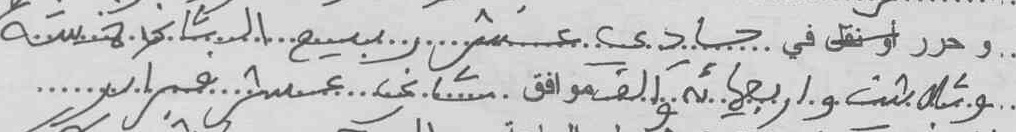 وحرر او نقل في حادى عشر ربيع الثانى خمسة
وثلاثين واربعمائة والف موافق ثمانى عشر فبراير